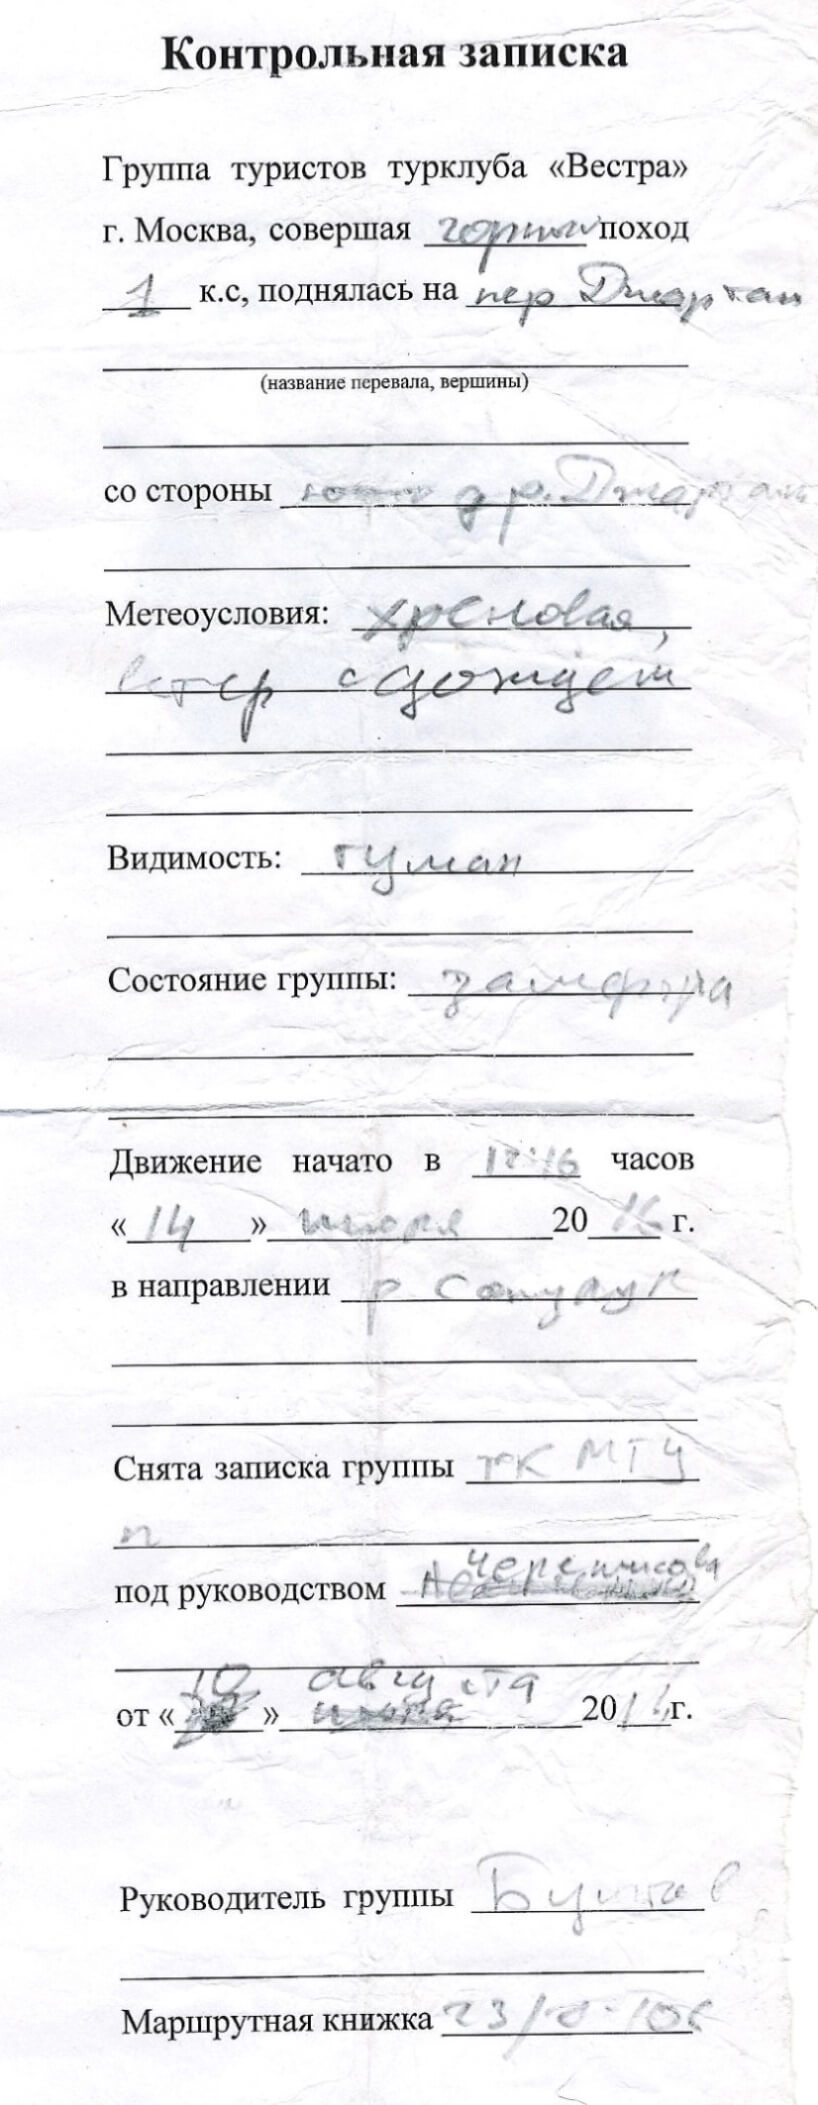 Контрольная записка
Группа туристов турклуба «Вестра»
г. Москва, совершая горный поход
1 к.с, поднялась на пер Джартан
(название перевала, вершины)
со стороны д р. Джартан
Метеоусловия: хреновая,
ветер с дождем
Видимость: туман
Состояние группы:
Движение начато в часов
«14» июля 2016 г.
в направлении р
Снята записка группы тк МГУ
п
под руководством Черемисова
от «10» августа 20 г.
Руководитель группы
Маршрутная книжка